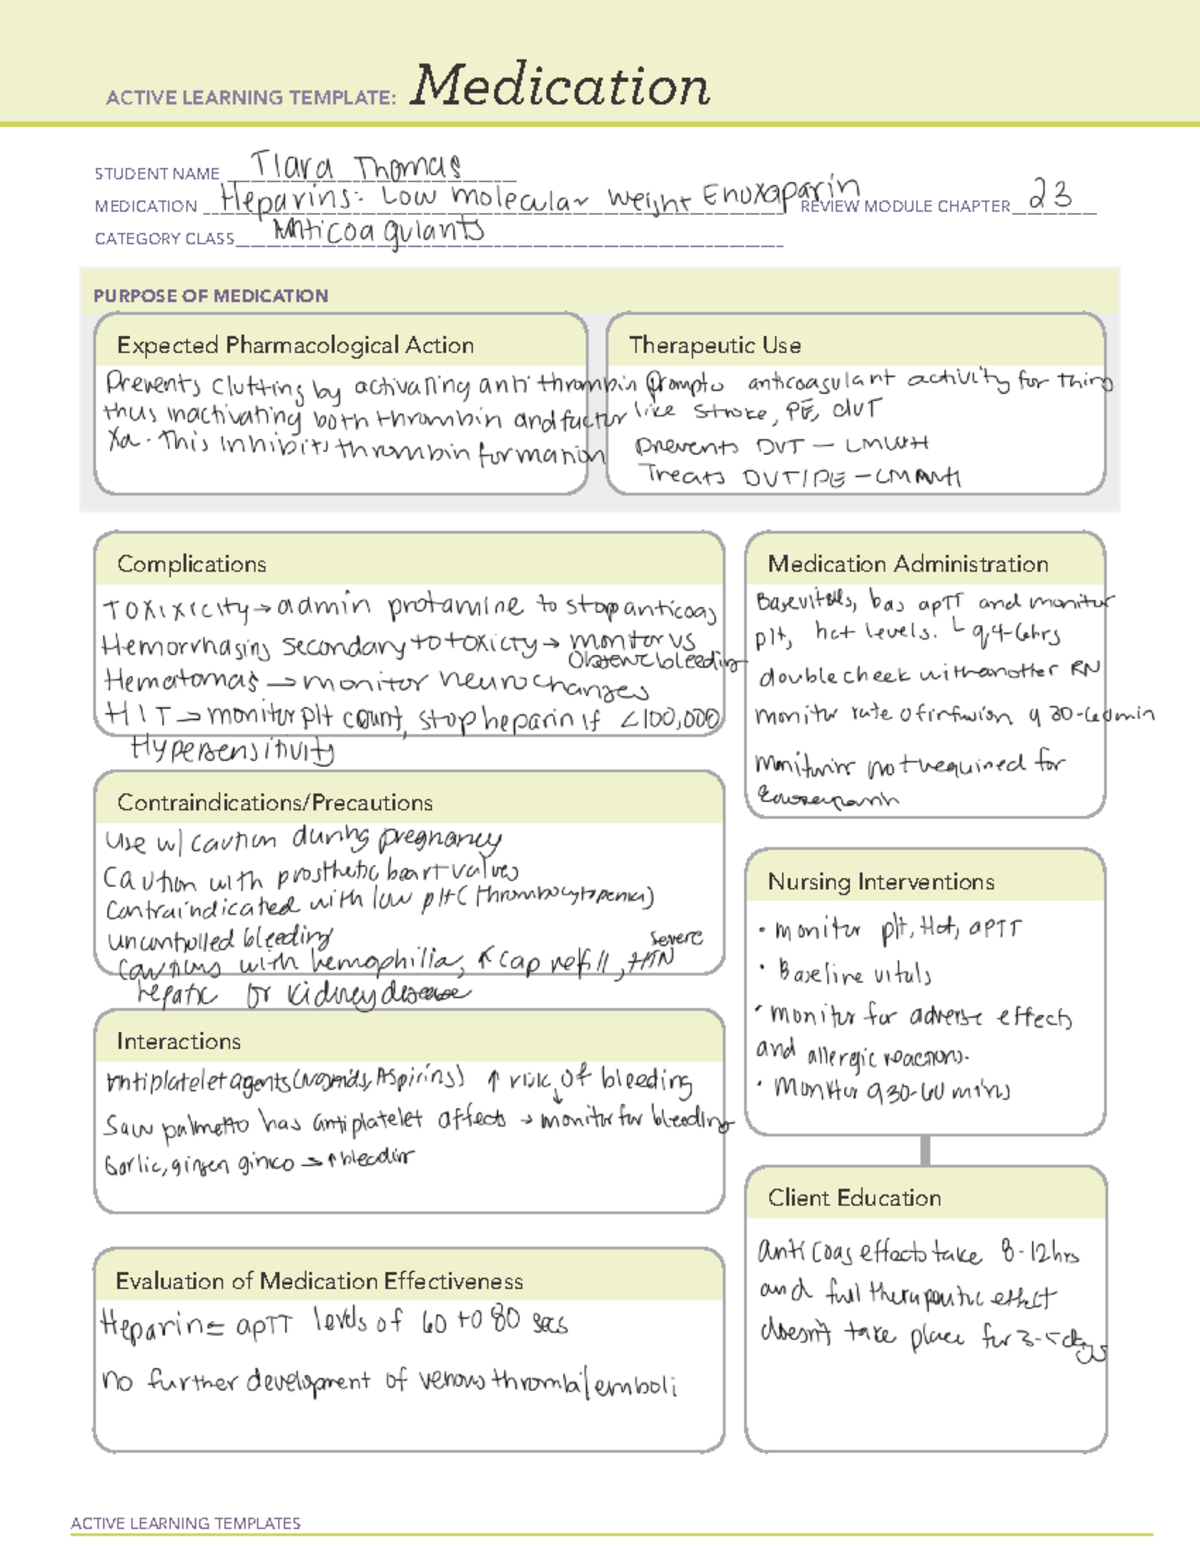 ACTIVE LEARNING TEMPLATE: Medication
STUDENT NAME Tiara Thomas
MEDICATION Heparins: Low molecular weight Enoxaparin REVIEW MODULE CHAPTER 23
CATEGORY CLASS Anticoagulants
PURPOSE OF MEDICATION
Expected Pharmacological Action
Prevents clutting by activating antithrombin
thus inactivating both thrombin and factor
Xa. This inhibits thrombin formation
Therapeutic Use
prompts anticoagulant activity for thing
like stroke, PE, dVT
prevents DVT - LMWH
Treats DVT/PE -
Complications
Toxixicity → admin protamine to stop anticoag
Hemorrhaging secondary to toxicty → monitor vs
Observe bleeding
Hematomas → monitor neurochanges
HIT → monitor plt count, stop heparin if <100,000
Hypersensitivity
Contraindications/Precautions
Use w/ caution during pregnancy
Caution with prosthetic heart valves
Contraindicated with low plt (thrombocytopenia)
uncontrolled bleeding
Cautious with hemophilia, ↑ cap refill, severe HTN
hepatic or kidney disease
Interactions
Antiplatelet agents (Nsaids, Aspirins) ↑ risk of bleeding
Saw palmetto has antiplatelet affects → monitor for bleeding
Garlic, ginsen ginco → ↑ bleedin
Evaluation of Medication Effectiveness
Heparin = apTT levels of 60 to 80 secs
no further development of venous thrombi/emboli
Medication Administration
Base vitals, bas apTT and monitor
plt, hct levels. └ q4-6hrs
double check with another RN
monitor rate of infusion q 30-60min
monitoring not required for
Enoxaparin
Nursing Interventions
• monitor plt, Hct, aPTT
• Baseline vitals
• monitor for adverse effects
and allergic reactions.
• Monitor q30-60 mins
Client Education
anticoag effects take 8-12hrs
and full therapeutic effect
doesn't take place for 3-5 days
ACTIVE LEARNING TEMPLATES